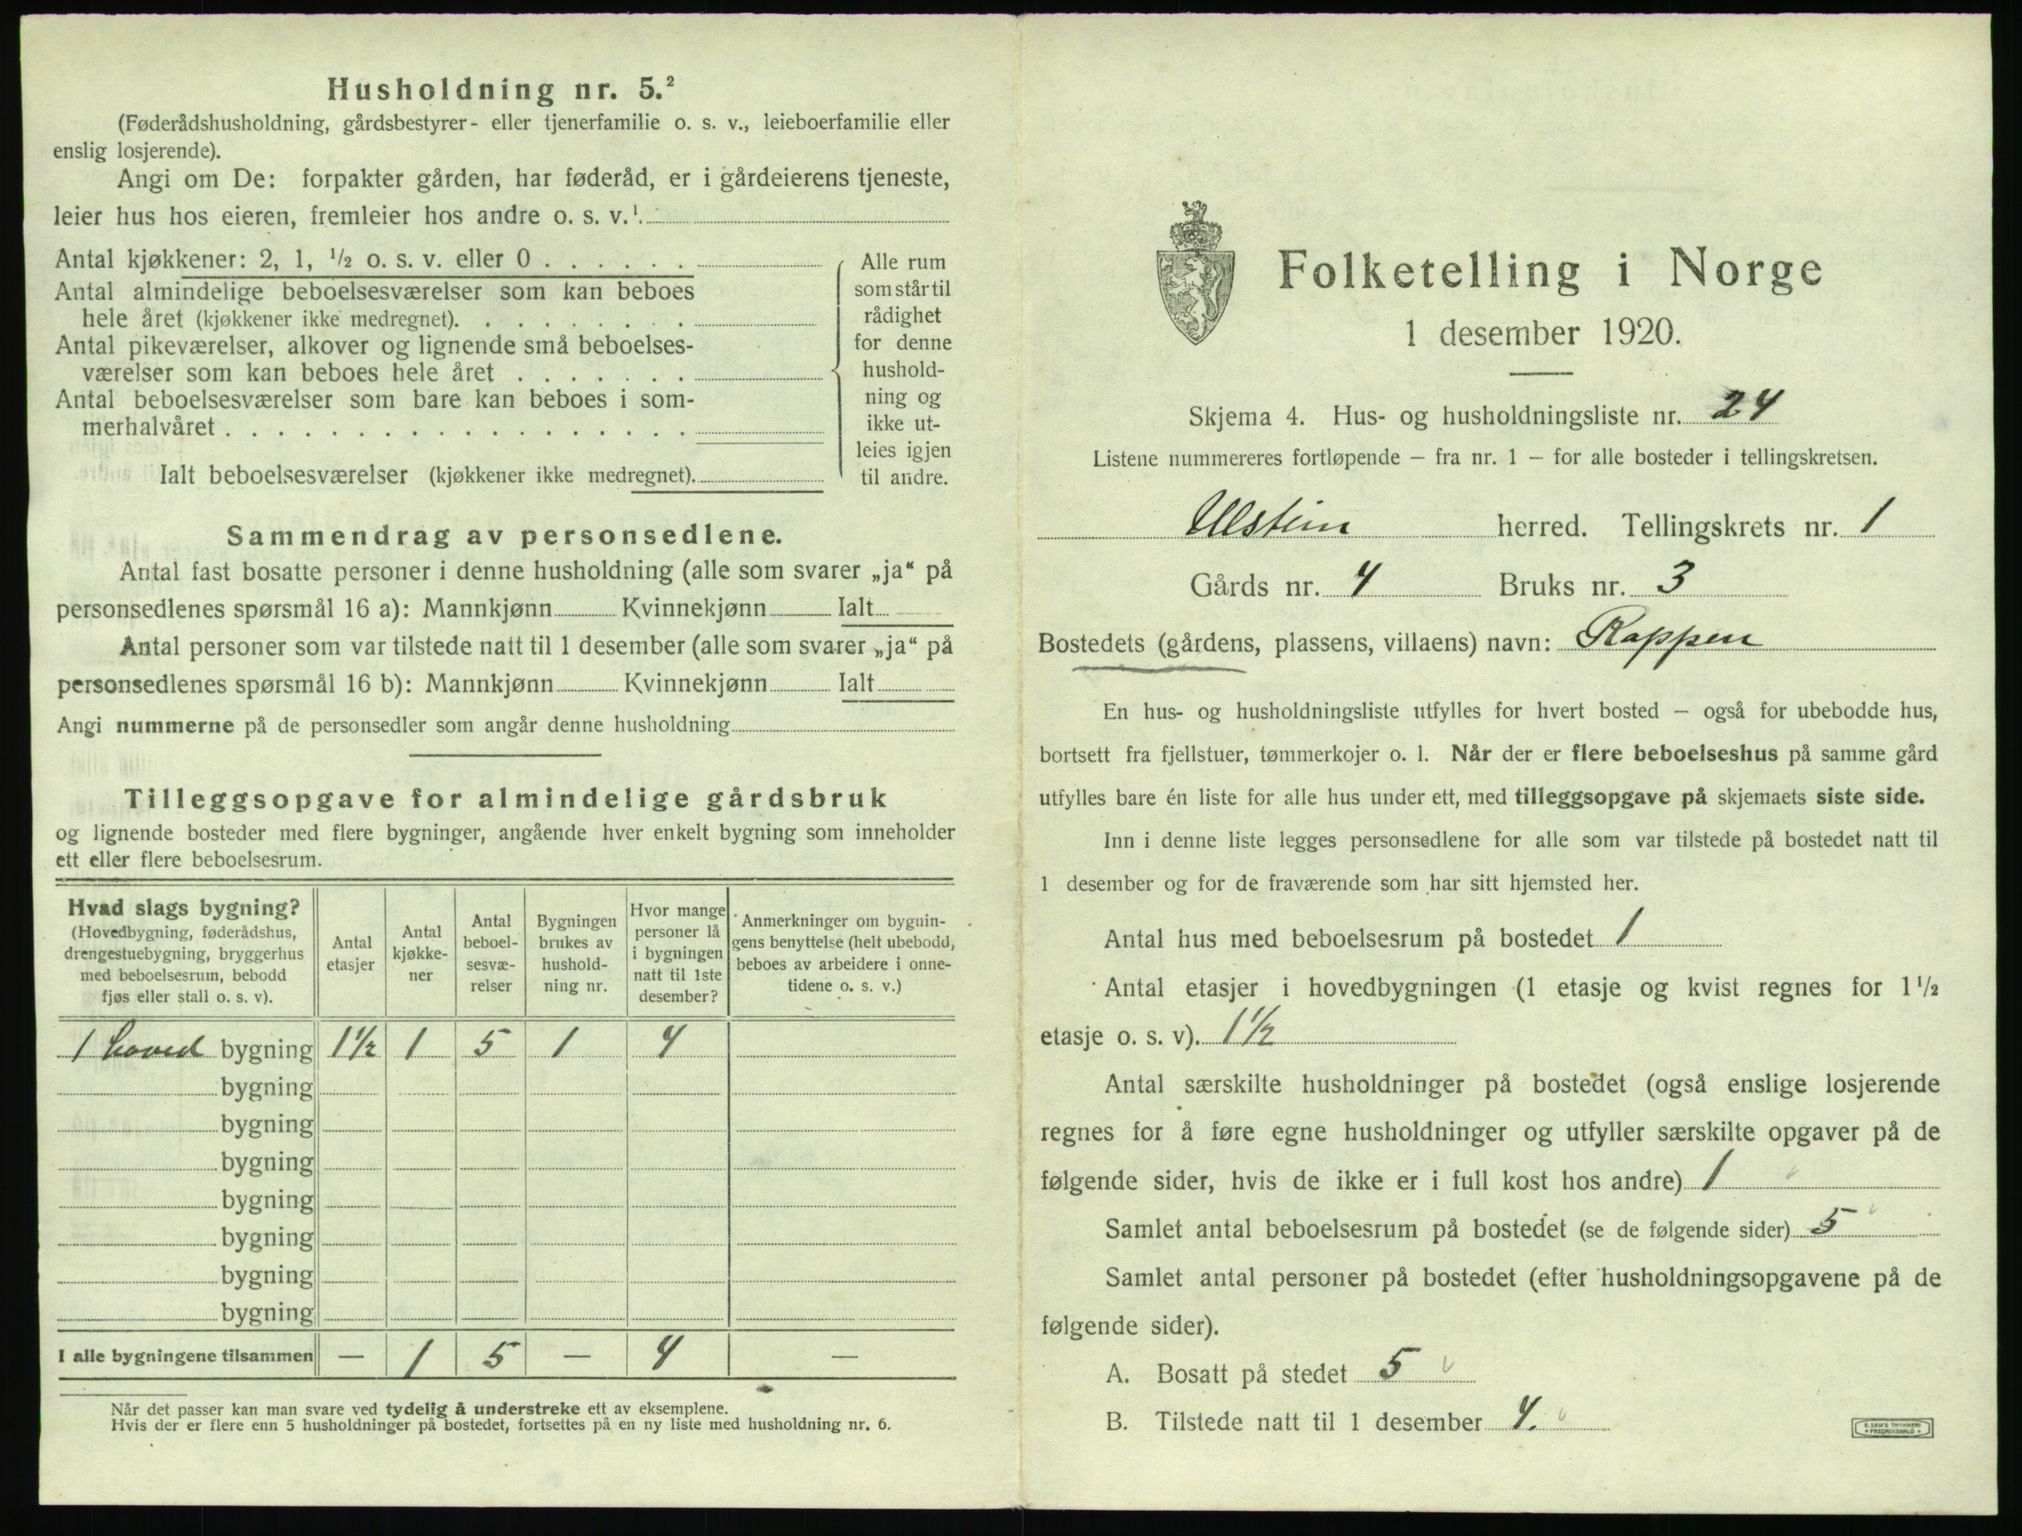 Husholdning nr. 5.²
(Føderådshusholdning, gårdsbestyrer- eller tjenerfamilie o. s. v., leieboerfamilie eller
enslig losjerende).
Angi om De: forpakter gården, har føderåd, er i gårdeierens tjeneste,
leier hus hos eieren, fremleier hos andre o. s. v.¹.
Antal kjøkkener: 2, 1, ½ o. s. v. eller 0 . . . . . .
Antal almindelige beboelsesværelser som kan beboes
hele året (kjøkkener ikke medregnet). . . . . . . . .
Antal pikeværelser, alkover og lignende små beboelses-
værelser som kan beboes hele året . . . . . . .
Antal beboelsesværelser som bare kan beboes i som-
merhalvåret . . . . . . . . . . . . . . . . . .
Ialt beboelsesværelser (kjøkkener ikke medregnet).
Alle rum
som står til
rådighet
for denne
hushold-
ning og
ikke ut-
leies igjen
til andre.
Sammendrag av personsedlene.
Antal fast bosatte personer i denne husholdning (alle som svarer „ja“ på
personsedlenes spørsmål 16 a): Mannkjønn Kvinnekjønn Ialt
Antal personer som var tilstede natt til 1 desember (alle som svarer „ja“ på
personsedlenes spørsmål 16 b): Mannkjønn Kvinnekjønn Ialt
Angi nummerne på de personsedler som angår denne husholdning
Tilleggsopgave for almindelige gårdsbruk
og lignende bosteder med flere bygninger, angående hver enkelt bygning som inneholder
ett eller flere beboelsesrum.
Hvad slags bygning?
(Hovedbygning, føderådshus,
drengestuebygning, bryggerhus
med beboelsesrum, bebodd
fjøs eller stall o. s. v).
Antal
etasjer
Antal
kjøkke-
ner
Antal
beboel-
sesvæ-
relser
Bygningen
brukes av
hushold-
ning nr.
Hvor mange
personer lå
i bygningen
natt til 1ste
desember?
Anmerkninger om bygnin-
gens benyttelse (helt ubebodd,
beboes av arbeidere i onne-
tidene o. s. v.)
1 hoved bygning 1½ 1 5 1 4
bygning
bygning
bygning
bygning
bygning
bygning
bygning
I alle bygningene tilsammen — 1 5 — 4 —
Når det passer kan man svare ved tydelig å understreke ett av eksemplene.
Hvis der er flere enn 5 husholdninger på bostedet, fortsettes på en ny liste med husholdning nr. 6.
Folketelling i Norge
1 desember 1920.
Skjema 4. Hus- og husholdningsliste nr. 24
Listene nummereres fortløpende – fra nr. 1 – for alle bosteder i tellingskretsen.
Ulstein herred. Tellingskrets nr. 1
Gårds nr. 4 Bruks nr. 3
Bostedets (gårdens, plassens, villaens) navn: Rappen
En hus- og husholdningsliste utfylles for hvert bosted – også for ubebodde hus,
bortsett fra fjellstuer, tømmerkojer o. l. Når der er flere beboelseshus på samme gård
utfylles bare én liste for alle hus under ett, med tilleggsopgave på skjemaets siste side.
Inn i denne liste legges personsedlene for alle som var tilstede på bostedet natt til
1 desember og for de fraværende som har sitt hjemsted her.
Antal hus med beboelsesrum på bostedet 1
Antal etasjer i hovedbygningen (1 etasje og kvist regnes for 1½
etasje o. s. v). 1½
Antal særskilte husholdninger på bostedet (også enslige losjerende
regnes for å føre egne husholdninger og utfyller særskilte opgaver på de
følgende sider, hvis de ikke er i full kost hos andre) 1
Samlet antal beboelsesrum på bostedet (se de følgende sider) 5
Samlet antal personer på bostedet (efter husholdningsopgavene på de
følgende sider).
A. Bosatt på stedet 5
B. Tilstede natt til 1 desember 4.
E. SEM'S TRYKKERI
FREDRIKSHALD